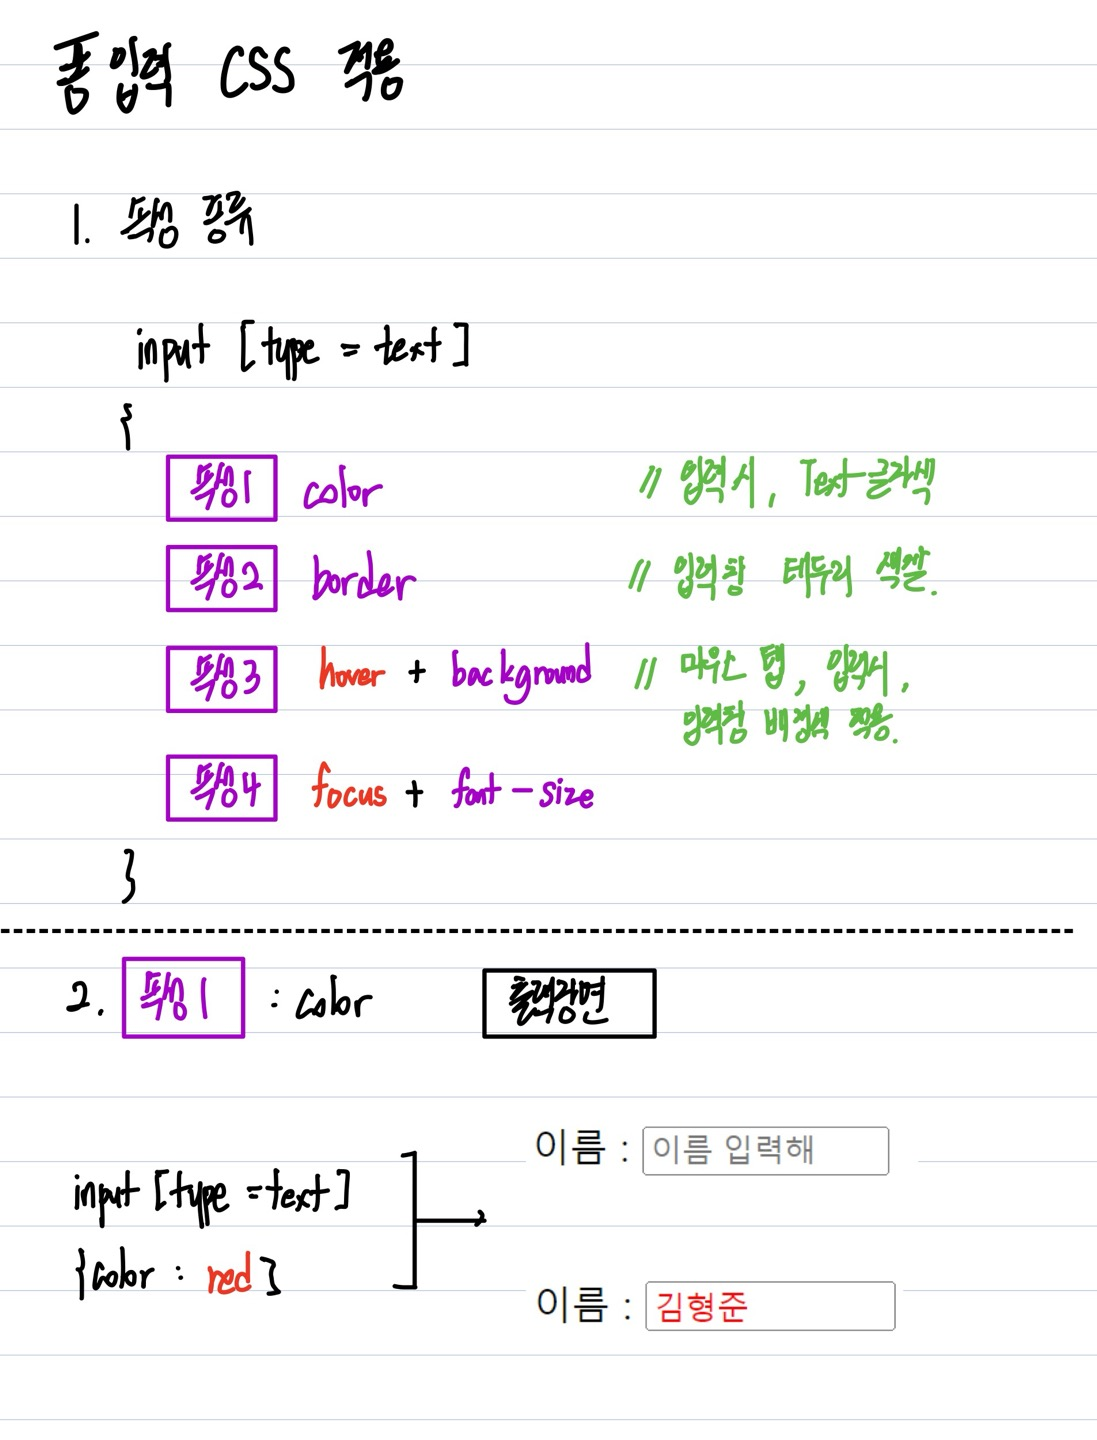 폼 입력 CSS 적용
1. 특성 종류
input [type = text]
{
특성1 color // 입력시, Text-글자색
특성2 border // 입력창 테두리 색깔.
특성3 hover + background // 마우스 탭, 입력시,
입력창 배경색 적용.
특성4 focus + font-size
}
2. 특성1 : color 출력장면
이름 : 이름 입력해
input [type = text]
{color : red}
이름 : 김형준